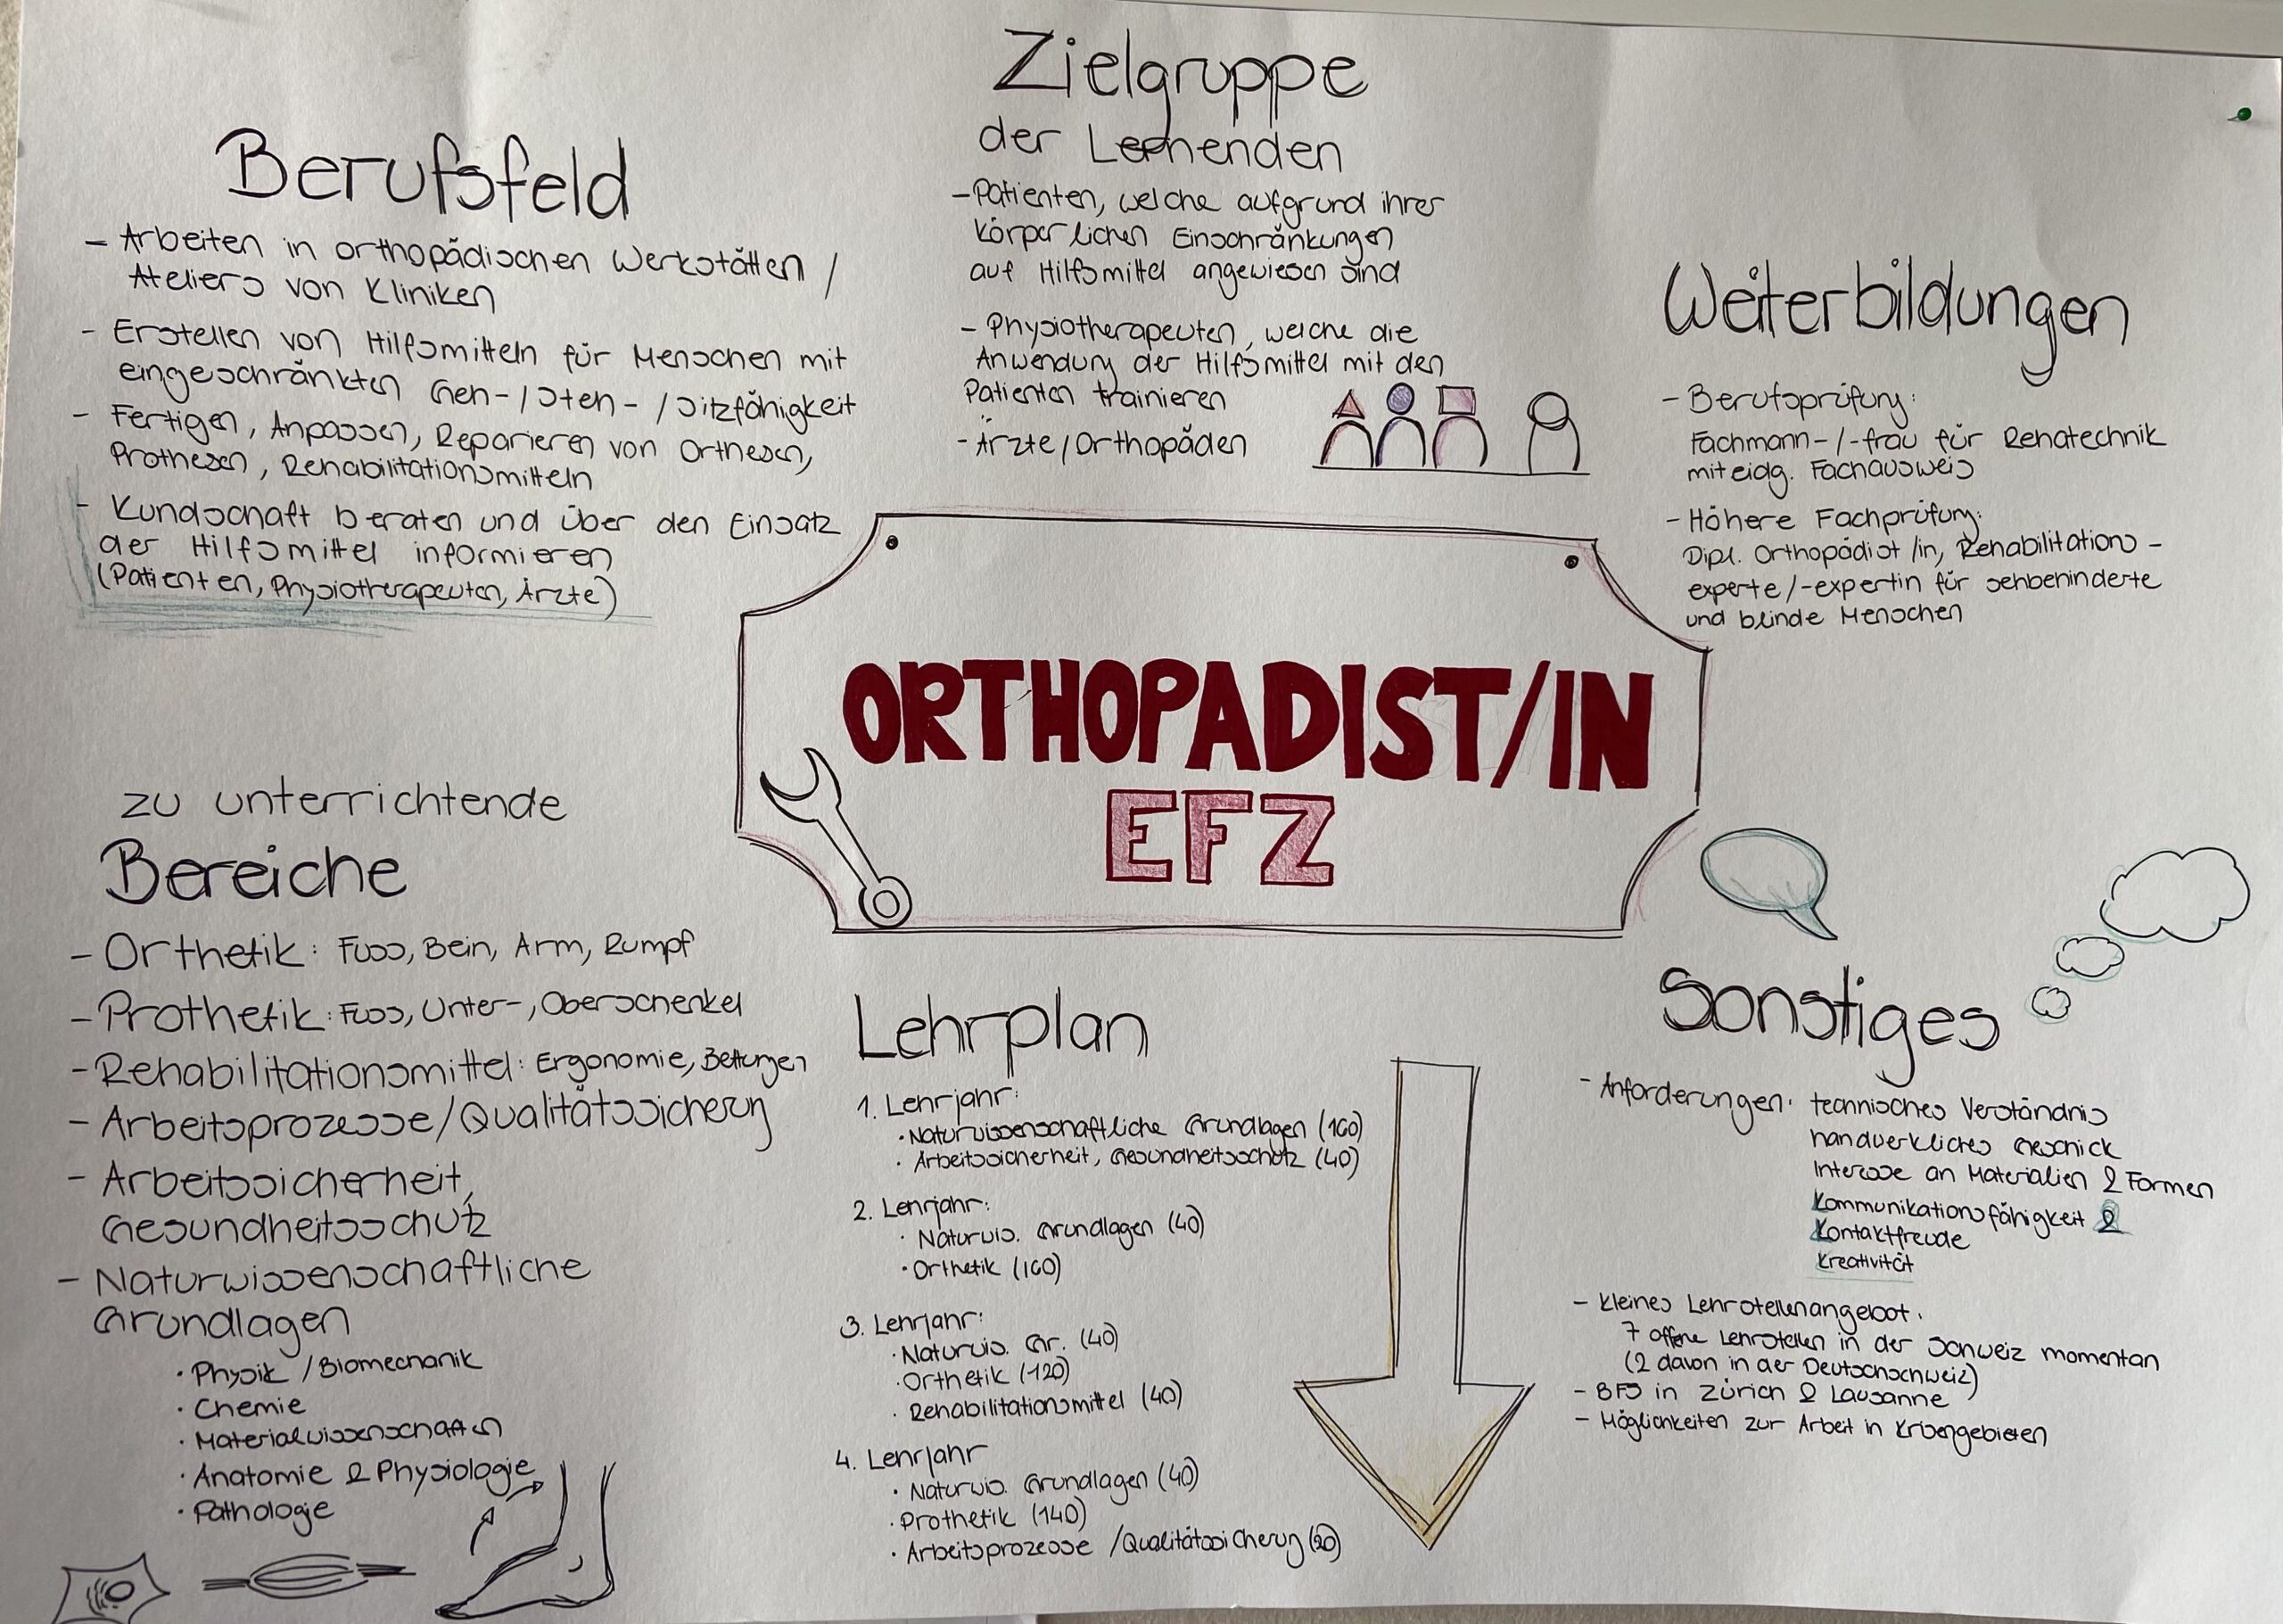 Zielgruppe
der Lernenden
- Patienten, welche aufgrund ihrer
körperlichen Einschränkungen
auf Hilfsmittel angewiesen sind
- Physiotherapeuten, welche die
Anwendung der Hilfsmittel mit den
Patienten trainieren
- Ärzte/Orthopäden
Berufsfeld
- Arbeiten in orthopädischen Werkstätten /
Ateliers von Kliniken
- Erstellen von Hilfsmitteln für Menschen mit
eingeschränkten Geh-/Steh-/Sitzfähigkeit
- Fertigen, Anpassen, Reparieren von Orthesen,
Prothesen, Rehabilitationsmitteln
- Kundschaft beraten und über den Einsatz
der Hilfsmittel informieren
(Patienten, Physiotherapeuten, Ärzte)
Weiterbildungen
- Berufsprüfung:
Fachmann-/-frau für Rehatechnik
mit eidg. Fachausweis
- Höhere Fachprüfung:
Dipl. Orthopädist/in, Rehabilitations-
experte/-expertin für sehbehinderte
und blinde Menschen
ORTHOPADIST/IN
EFZ
zu unterrichtende
Bereiche
- Orthetik: Fuss, Bein, Arm, Rumpf
- Prothetik: Fuss, Unter-, Oberschenkel
- Rehabilitationsmittel: Ergonomie, Bettungen
- Arbeitsprozesse/Qualitätssicherung
- Arbeitssicherheit,
Gesundheitsschutz
- Naturwissenschaftliche
Grundlagen
· Physik/Biomechanik
· Chemie
· Materialwissenschaften
· Anatomie & Physiologie
· Pathologie
Lehrplan
1. Lehrjahr:
· Naturwissenschaftliche Grundlagen (160)
· Arbeitssicherheit, Gesundheitsschutz (40)
2. Lehrjahr:
· Naturwis. Grundlagen (40)
· Orthetik (160)
3. Lehrjahr:
· Naturwis. Gr. (40)
· Orthetik (120)
· Rehabilitationsmittel (40)
4. Lehrjahr
· Naturwis. Grundlagen (40)
· Prothetik (140)
· Arbeitsprozesse/Qualitätssicherung (20)
Sonstiges
- Anforderungen: technisches Verständnis
handwerkliches Geschick
Interesse an Materialien & Formen
Kommunikationsfähigkeit &
Kontaktfreude
Kreativität
- kleines Lehrstellenangebot:
7 offene Lehrstellen in der Schweiz momentan
(2 davon in der Deutschschweiz)
- BFS in Zürich & Lausanne
- Möglichkeiten zur Arbeit in Krisengebieten